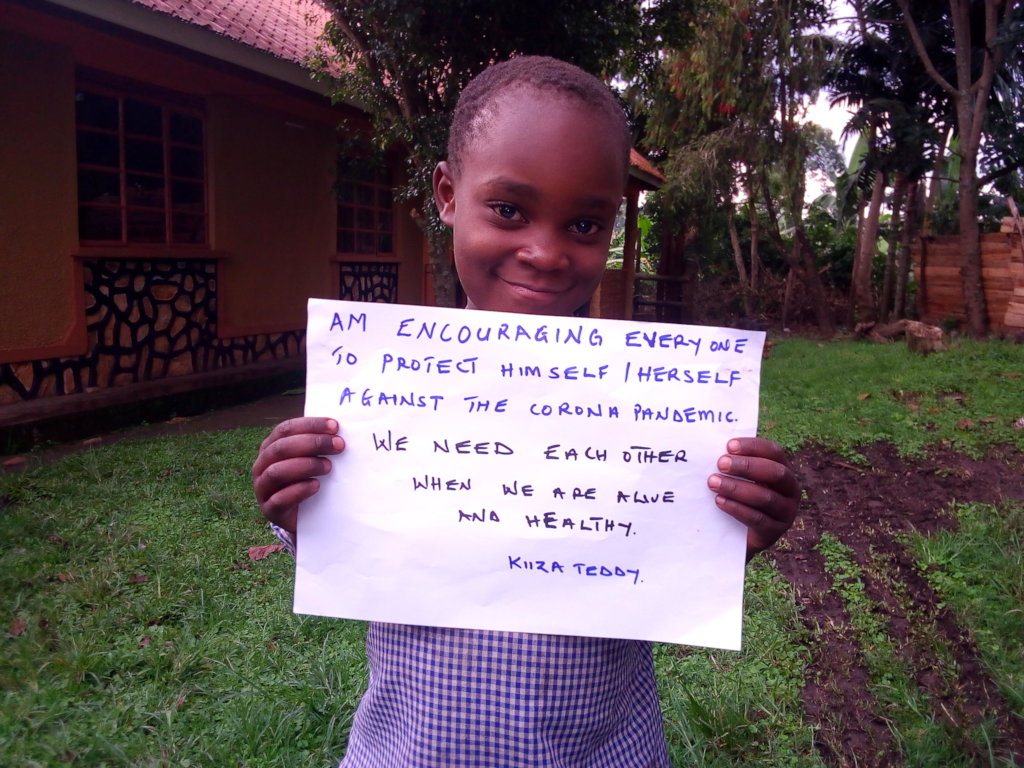 AM ENCOURAGING EVERYONE
TO PROTECT HIMSELF / HERSELF
AGAINST THE CORONA PANDEMIC.
WE NEED EACH OTHER
WHEN WE ARE ALIVE
AND HEALTHY.
KIIZA TEDDY.